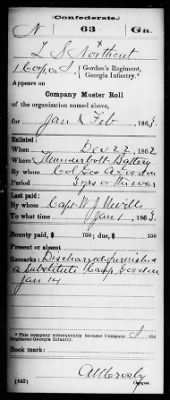 (Confederate.)
N 63 Ga.
1 Corp Co. I, Gordon's Regiment,
Georgia Infantry.*
Appears on
Company Muster Roll
of the organization named above,
for Jan & Feb, 1863.
Enlisted:
When Dec 22, 1862
Where Thunderbolt Battery
By whom Col Geo A Gordon
Period 3 yrs or the war
Last paid:
By whom Capt W J
To what time Jan 1, 1863.
Bounty paid, $ 100; due, $ 100
Present or absent
Remarks: Discharged furnished
a Substitute Camp Gordon
Jan 14
*This company subsequently became Company
Regiment Georgia Infantry.
Book mark:
(642) Copyist.